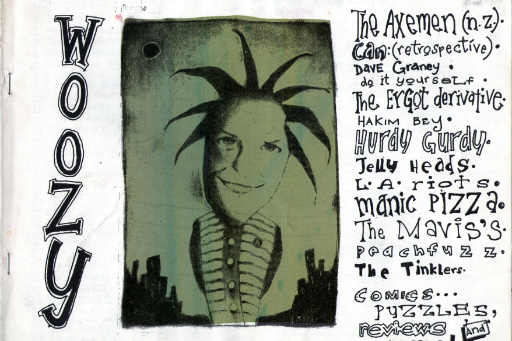 WOOZY
The Axemen (n.z.).
Can:(retrospective).
DAVE Graney.
do it yourself.
The Ergot derivative.
HAKIM BEY.
Hurdy Gurdy.
Jelly Heads.
L.A. riots.
manic PIZZa.
The Mavis's.
Peachfuzz.
The Tinklers.
COMICS...
PUZZLES,
reviews And